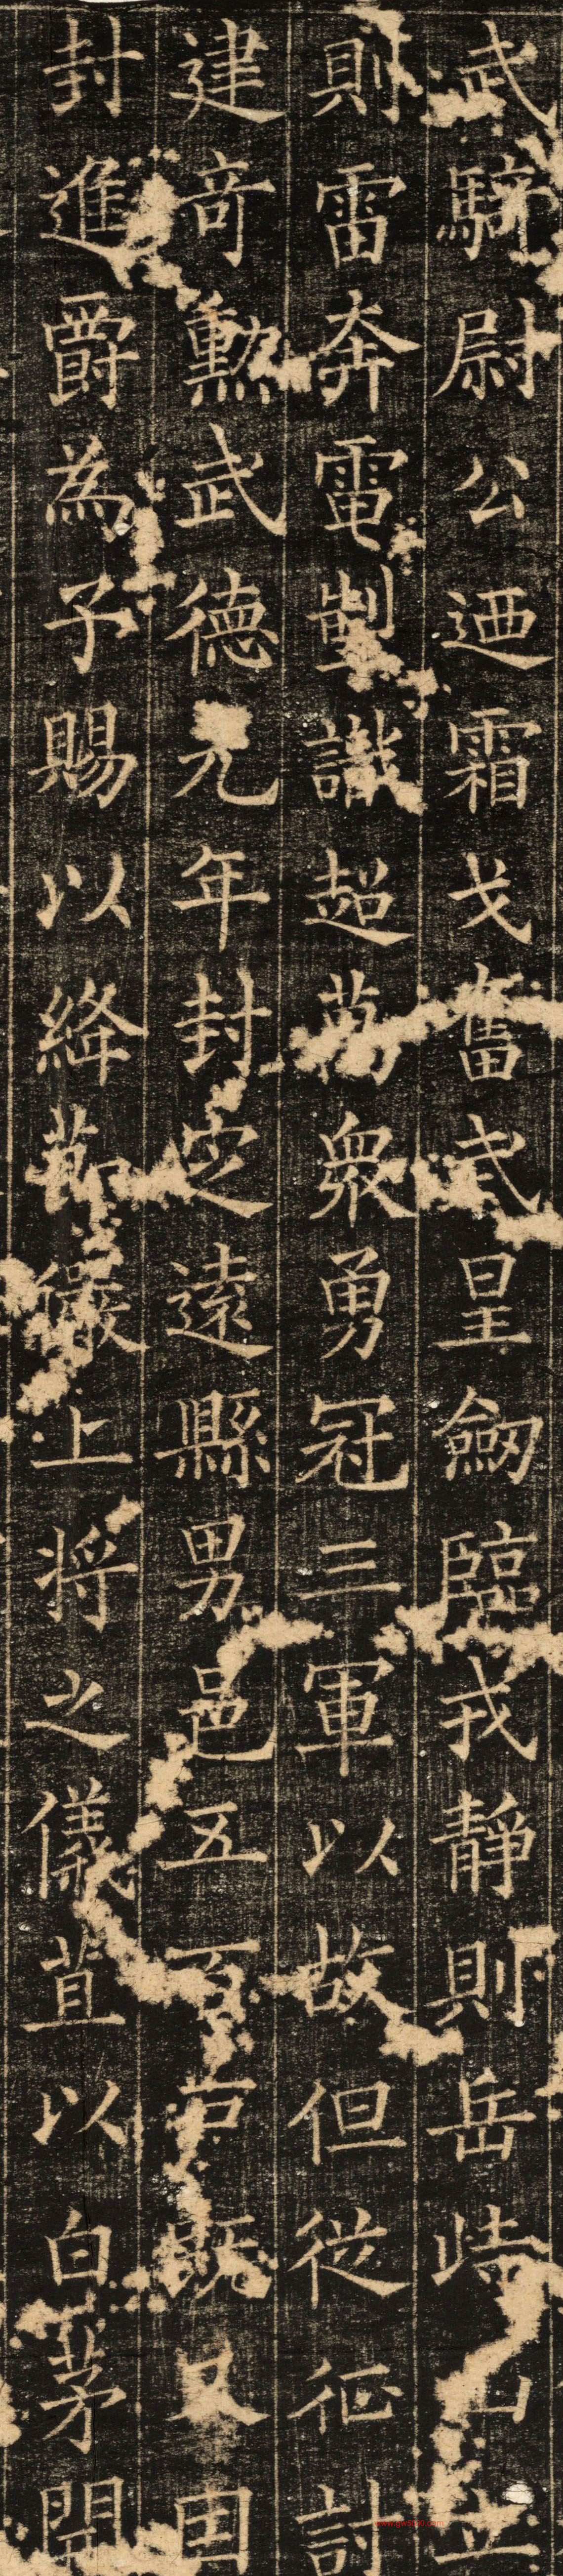 武騎尉公迺霜戈奮武星劒臨戎靜則岳峙山立
則雷奔電掣識超萬衆勇冠三軍以故但從征討
建奇勲武德元年封定遠縣男邑五百戸既又因
封進爵為子賜以絳節儼上将之儀苴以白茅開
www.gw5000.com